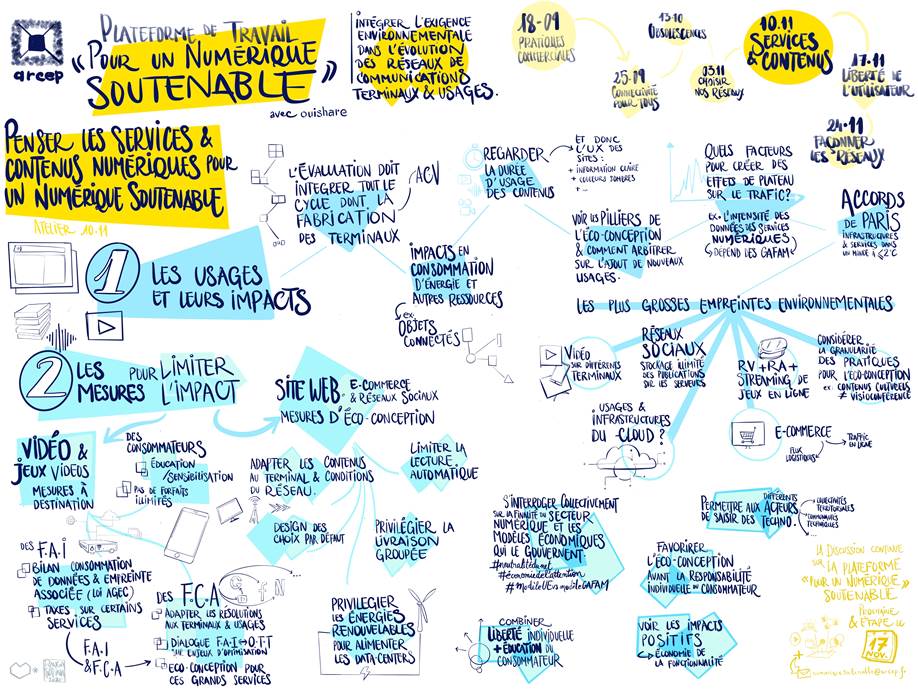 arcep
PLATEFORME DE TRAVAIL
"POUR UN NUMÉRIQUE
SOUTENABLE"
avec ouishare
INTÉGRER L'EXIGENCE
ENVIRONNEMENTALE
DANS L'ÉVOLUTION
DES RÉSEAUX DE
COMMUNICATIONS
TERMINAUX & USAGES.
18-09
PRATIQUES
COMMERCIALES
25.09
CONNECTIVITÉ
POUR TOUS
13-10
OBSOLESCENCES
03.11
CHOISIR
NOS RÉSEAUX
10.11
SERVICES
& CONTENUS
17.11
LIBERTÉ DE
L'UTILISATEUR
24-11
FAÇONNER
LES RÉSEAUX
PENSER LES SERVICES &
CONTENUS NUMÉRIQUES POUR
UN NUMÉRIQUE SOUTENABLE
ATELIER 10.11
1
LES USAGES
ET LEURS IMPACTS
L'ÉVALUATION DOIT
INTÉGRER TOUT LE
CYCLE DONT LA
FABRICATION
DES TERMINAUX
ACV
IMPACTS EN
CONSOMMATION
D'ÉNERGIE ET
AUTRES RESSOURCES
ex.
OBJETS
CONNECTÉS
REGARDER
LA DURÉE
D'USAGE
DES CONTENUS
ET DONC
L'UX DES
SITES :
+ INFORMATION CLAIRE
+ COULEURS SOMBRES
+ ...
VOIR LES PILLIERS DE
L'ÉCO-CONCEPTION
& COMMENT ARBITRER
SUR L'AJOUT DE NOUVEAUX
USAGES.
QUELS FACTEURS
POUR CRÉER DES
EFFETS DE PLATEAU
SUR LE TRAFIC?
ex. L'INTENSITÉ DES
DONNÉES DES SERVICES
NUMÉRIQUES
DÉPEND DES GAFAM
ACCORDS
DE PARIS
INFRASTRUCTURES
& SERVICES DANS
UN MONDE À ≤2°C
LES PLUS GROSSES EMPREINTES ENVIRONNEMENTALES
VIDÉO
SUR DIFFÉRENTS
TERMINAUX
RÉSEAUX
SOCIAUX
STOCKAGE ILLIMITÉ
DES PUBLICATIONS
SUR LES SERVEURS
USAGES &
INFRASTRUCTURES
DU CLOUD ?
RV + RA +
STREAMING DE
JEUX EN LIGNE
E-COMMERCE
FLUX
LOGISTIQUES
TRAFIC
EN LIGNE
CONSIDÉRER
LA GRANULARITÉ
DES PRATIQUES
POUR L'ÉCO-CONCEPTION
ex. CONTENUS CULTURELS
≠ VISIOCONFÉRENCE
2
LES
MESURES POUR LIMITER
L'IMPACT
VIDÉO &
JEUX VIDÉOS
MESURES À
DESTINATION
DES
CONSOMMATEURS
ÉDUCATION
/SENSIBILISATION
PAS DE FORFAITS
ILLIMITÉS
DES F.A.I
BILAN CONSOMMATION
DE DONNÉES & EMPREINTE
ASSOCIÉE (LOI AGEC)
TAXES SUR CERTAINS
SERVICES
F.A.I
& F.C.A
DES F.C.A
ADAPTER LES RÉSOLUTIONS
AUX TERMINAUX & USAGES
DIALOGUE F.A.I ↔ O.T.T
ÉCO-CONCEPTION POUR
CES GRANDS SERVICES
SITE WEB, E-COMMERCE
& RÉSEAUX SOCIAUX
MESURES D'ÉCO-CONCEPTION
ADAPTER LES CONTENUS
AU TERMINAL & CONDITIONS
DU RÉSEAU.
LIMITER LA
LECTURE
AUTOMATIQUE
DESIGN DES
CHOIX PAR DÉFAUT
PRIVILÉGIER LA
LIVRAISON
GROUPÉE
PRIVILEGIER
LES ÉNERGIES
RENOUVELABLES
POUR ALIMENTER
LES DATA-CENTERS
S'INTERROGER COLLECTIVEMENT
SUR LA FINALITÉ DU SECTEUR
NUMÉRIQUE ET LES
MODÈLES ÉCONOMIQUES
QUI LE GOUVERNENT.
#neutralitédunet
#économiedel'attention
#modèleUEvsmodèleGAFAM
COMBINER
LIBERTÉ INDIVIDUELLE
+ ÉDUCATION DU
CONSOMMATEUR
PERMETTRE AUX DIFFÉRENTS ACTEURS
DE SAISIR DES TECHNO.
COLLECTIVITÉS
TERRITORIALES
COMMUNAUTÉS
TECHNIQUES
...
FAVORIRER
L'ÉCO-CONCEPTION
AVANT LA RESPONSABILITÉ
INDIVIDUELLE DU CONSOMMATEUR
VOIR LES IMPACTS
POSITIFS
ÉCONOMIE DE
LA FONCTIONNALITÉ
LA DISCUSSION CONTINUE
SUR LA PLATEFORME
"POUR UN NUMÉRIQUE
SOUTENABLE"
PROCHAINE
ÉTAPE LE
17
NOV.